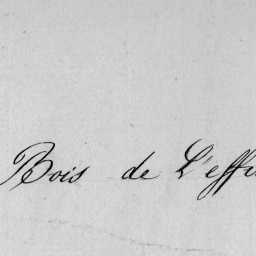 Bois de L'effi